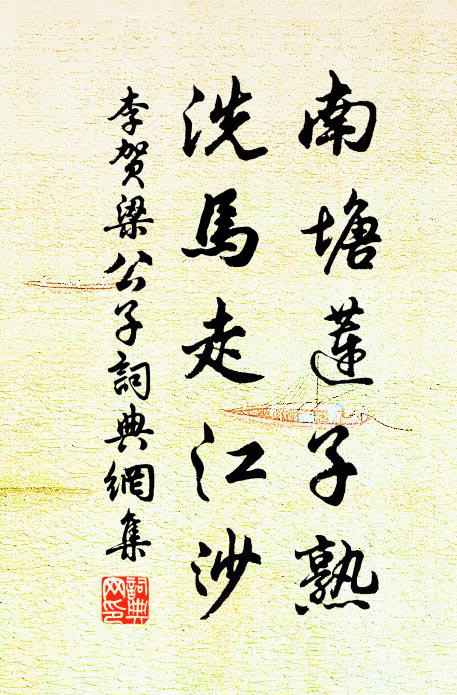 南塘蓮子熟
洗馬走江沙
李賀梁公子詞典網集
詞典
网印